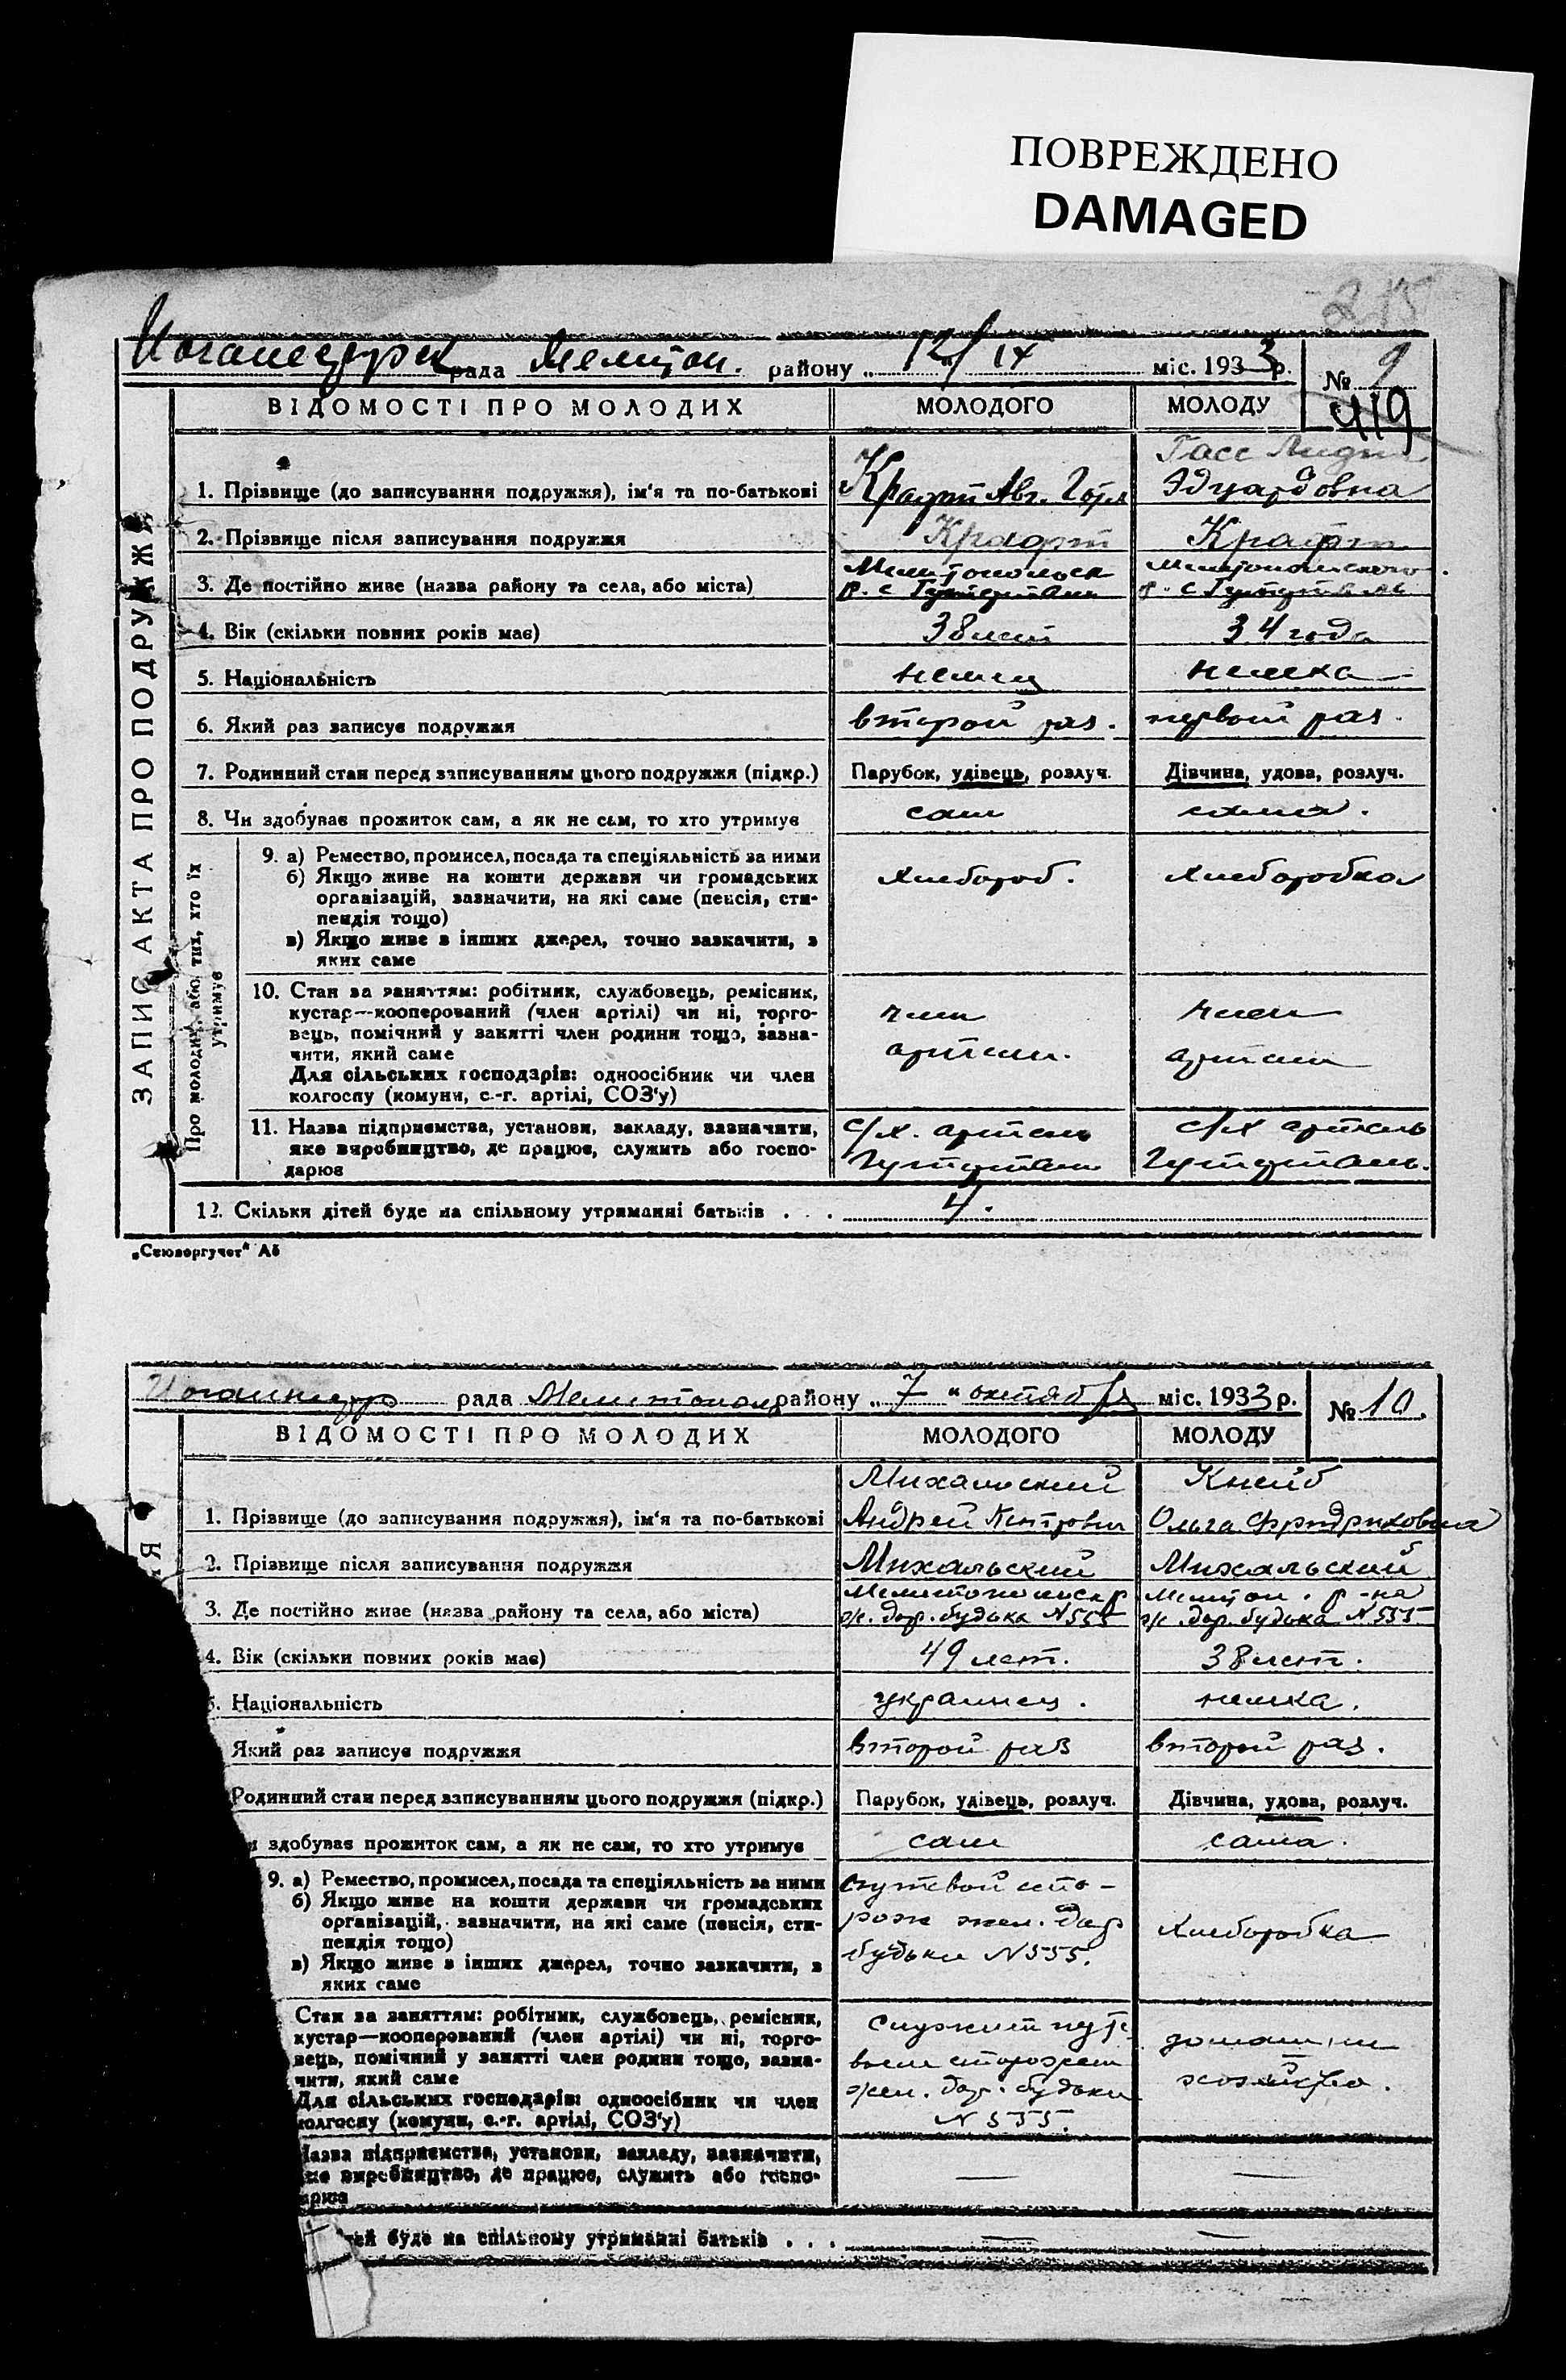 ПОВРЕЖДЕНО
DAMAGED
рада Мелитоп. району „ 12/ міс. 1933 р.
№ 9
419
ВІДОМОСТІ ПРО МОЛОДИХ МОЛОДОГО МОЛОДУ
ЗАПИС АКТА ПРО ПОДРУЖЖЯ
Гасс Лидия
1. Прізвище (до записування подружжя), ім'я та по-батькові Крафт Авг. Эдуардовна
2. Прізвище після записування подружжя Крафт Крафт
Мелитопольск Мелитопольского
3. Де постійно живе (назва району та села, або міста) р. с р. с
4. Вік (скільки повних років має) 38 лет 34 года
5. Національність немец немка
6. Який раз записує подружжя второй раз. первый раз.
7. Родинний стан перед записуванням цього подружжя (підкр.) Парубок, удівець, розлуч. Дівчина, удова, розлуч.
8. Чи здобуває прожиток сам, а як не сам, то хто утримує сам сама.
Про молодих, або тих, хто їх утримує
9. а) Ремество, промисел, посада та спеціяльність за ними
б) Якщо живе на кошти держави чи громадських Хлебороб. Хлеборобка
організацій, зазначити, на які саме (пенсія, сти-
пендія тощо)
в) Якщо живе з інших джерел, точно зазначити, з
яких саме
10. Стан за заняттям: робітник, службовець, ремісник,
кустар—кооперований (член артілі) чи ні, торго- член член
вець, помічний у занятті член родини тощо, зазна-
чити, який саме артели. артели
Для сільських господарів: одноосібник чи член
колгоспу (комуни, с.-г. артілі, СОЗ'у)
11. Назва підприємства, установи, закладу, зазначити, с/х. артель с/х артель
яке виробництво, де працює, служить або госпо-
дарює
12. Скільки дітей буде на спільному утриманні батьків . . . 4.
рада Мелитопол району „ 7 " октября міс. 1933 р.
№ 10.
ВІДОМОСТІ ПРО МОЛОДИХ МОЛОДОГО МОЛОДУ
Михальский Кнейб
1. Прізвище (до записування подружжя), ім'я та по-батькові Андрей Петрович Ольга Фридриховна
2. Прізвище після записування подружжя Михальский Михальский
Мелитопольск р Мелитоп. р-на
3. Де постійно живе (назва району та села, або міста) ж. дор. будька N 555 ж. дор. будька N 555
4. Вік (скільки повних років має) 49 лет. 38 лет.
5. Національність украинец. немка.
Який раз записує подружжя второй раз второй раз.
Родинний стан перед записуванням цього подружжя (підкр.) Парубок, удівець, розлуч. Дівчина, удова, розлуч.
здобуває прожиток сам, а як не сам, то хто утримує сам сама.
9. а) Ремество, промисел, посада та спеціяльність за ними путевой сто-
б) Якщо живе на кошти держави чи громадських рож жел. дор
організацій, зазначити, на які саме (пенсія, сти- Хлеборобка
пендія тощо) будьки N 555.
в) Якщо живе з інших джерел, точно зазначити, з
яких саме
Стан за заняттям: робітник, службовець, ремісник, служит путе
кустар—кооперований (член артілі) чи ні, торго- домашнее
вець, помічний у занятті член родини тощо, зазна- вым сторожем
чити, який саме жел. дор. будьки хозяйство.
Для сільських господарів: одноосібник чи член
колгоспу (комуни, с.-г. артілі, СОЗ'у) N 555.
Назва підприємства, установи, закладу, зазначити,
яке виробництво, де працює, служить або госпо- — —
дарює
тей буде на спільному утриманні батьків . . . — —